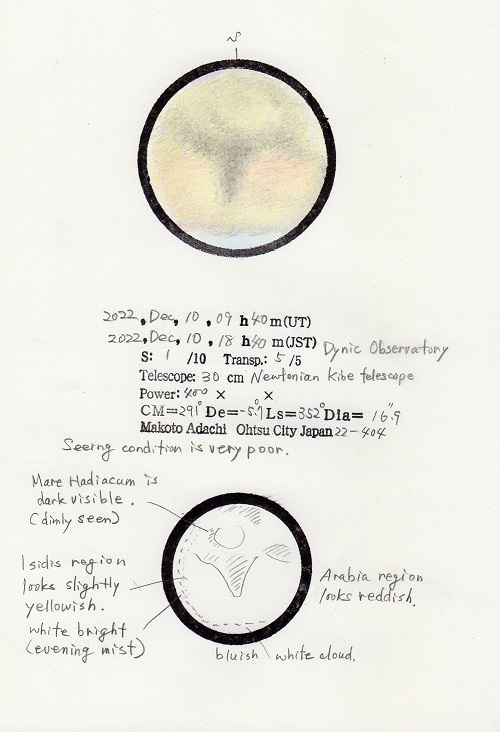 S
2022, Dec, 10, 09 h 40 m (UT)
2022, Dec, 10, 18 h 40 m (JST) Dynic Observatory
S: 1 /10 Transp.: 5 /5
Telescope: 30 cm Newtonian Kibe telescope
Power: 400 × ×
CM=291° De=-5.7° Ls=352° Dia= 16".9
Makoto Adachi Ohtsu City Japan 22-404
Seeing condition is very poor.
Mare Hadiacum is
dark visible.
(dimly seen)
Isidis region
looks slightly
yellowish.
white bright
(evening mist)
Arabia region
looks reddish.
bluish white cloud.